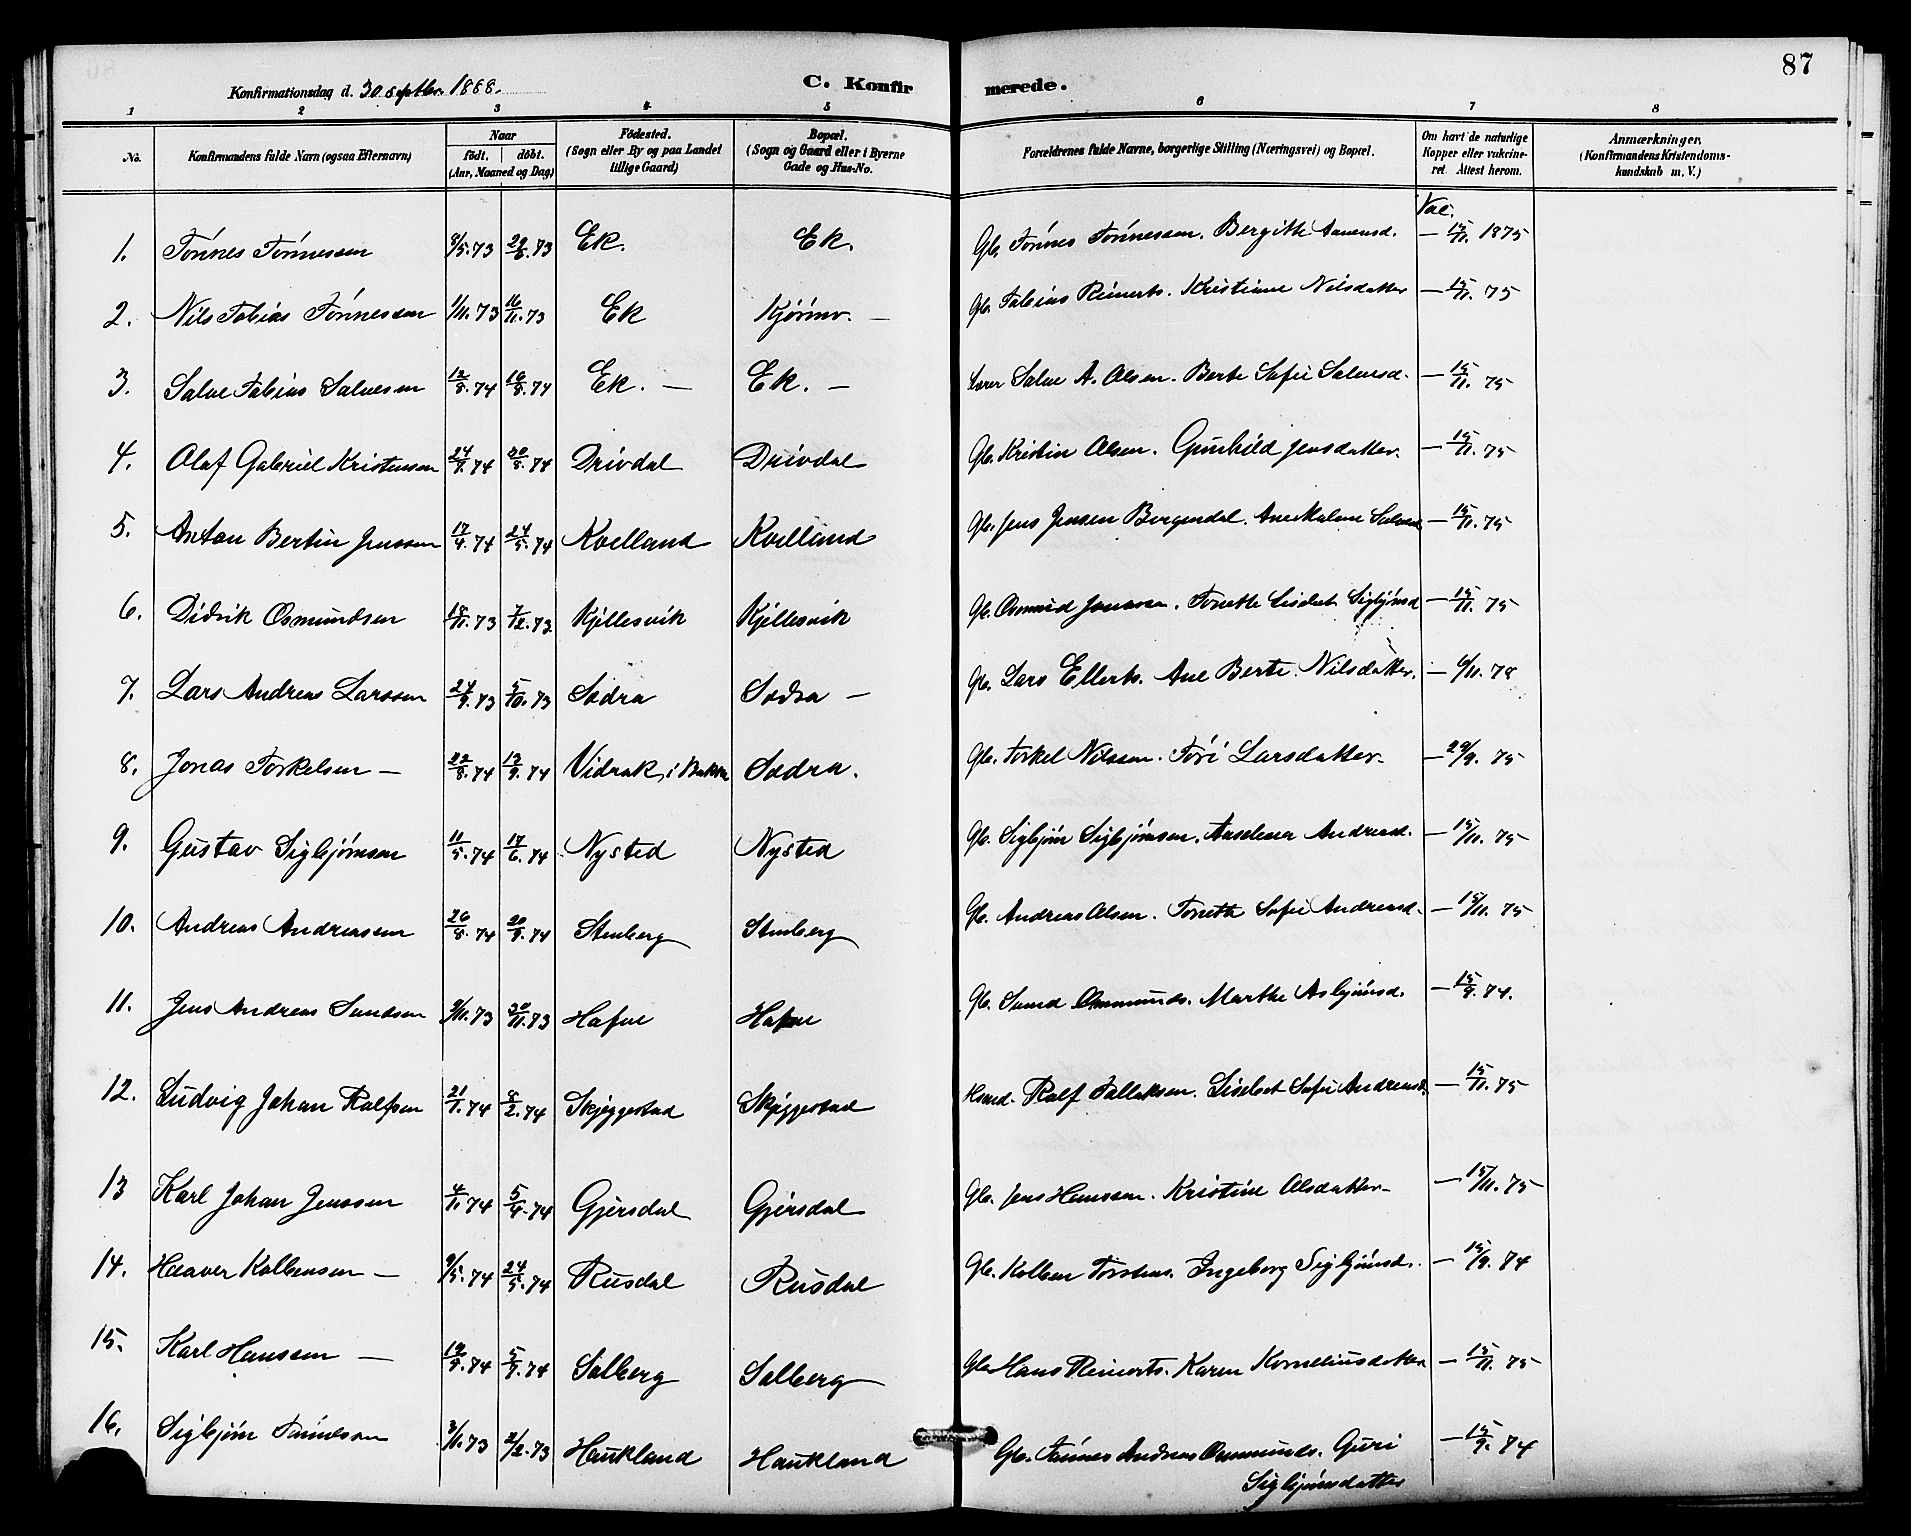 87
Konfirmationsdag d. 30 septbr. 1888.
C. Konfirmerede.
1 2 3 4 5 6 7 8
No. Konfirmandens fulde Navn (ogsaa Efternavn) Naar født, døbt. (Aar, Maaned og Dag) Födested. (Sogn eller By og paa Landet tillige Gaard) Bopæl. (Sogn og Gaard eller i Byerne Gade og Hus-No. Forældrenes fulde Navne, borgerlige Stilling (Næringsvei) og Bopæl. Om havt de naturlige Kopper eller vakcineret Attest herom. Anmærkninger, (Konfirmandens Kristendomskundskab m. V.)
Vac.
1. Tónnes Tónnessen 9/5.73 29/6.73 Ek. Ek. Gb. Tónnes Tónnessen. Bergitte Aanensd. — 15/11. 1875
2. Nils Tobias Tónnessen 1/11.73 16/11.73 Ek Kjörmo. — Gb. Tobias Reinerts. Kristiane Nilsdatter — 15/11. 75
3. Salve Tobias Salvesen 12/8.74 16/8.74 Ek. — Ek. — Salve A. Olsen. Berte Sofie Salvesd. — 15/11. 75
4. Olaf Gabriel Kristensen 24/7.74 30/8.74 Drivdal Drivdal Gb. Kristin Olsen. Gunhild Jensdatter. — 15/11. 75
5. Anton Bertin Jenssen 17/4.74 24/5.74 Kvelland Kvelland Gb. Jens Jensen Bergendal. Ane Malene Salvesd. — 15/11. 75
6. Didrik Osmundsen 18/11.73 7/12.73 Kjellesvik Kjellesvik Gb. Osmund Jonassen. Tonette Liselet Sigbjörnsd — 15/11. 75
7. Lars Andreas Larssen 24/9.73 5/10.73 Sødra Sødra — Gb. Lars Ellerts. Ane Berte Nilsdatter. — 6/11. 78
8. Jonas Torkelsen — 22/8.74 13/9.74 Vidrak, i Bakke Sødra. Gb. Torkel Nilssen. Tóri Larsdatter — 29/9. 75
9. Gustav Sigbjörnsen 11/5.74 17/6.74 Nysted Nysted Gb. Sigbjörn Sigbjörnsen. Andreasd. — 15/11. 75
10. Andreas Andreassen 26/8.74 20/9.74 Stenberg Stenberg Gb. Andreas Olsen. Tonette Sofie Andreasd. — 15/11. 75
11. Jens Andreas Sundsen 9/11.73 30/11.73 Hafne Hafne Gb. Osmunds. Marthe Asbjörnsd. — 15/9. 74.
12. Ludvig Johan Ralfsen 21/1.74 8/2.74 Skjeggestad Skjeggestad Husmd. Ralf Tallaksen. Liselset Sofie Andreasd. — 15/11. 75
13 Karl Johan Jenssen 4/1.74 5/4.74 Gjersdal Gjersdal Gb. Jens Hanssen. Kristine Olsdatter — 15/11. 75
14. Haaver Kolbensen — 9/5.74 24/5.74 Rusdal Rusdal Gb. Kolben Torstens. Ingeborg Sigbjörnsd. — 15/9. 74
15. Karl Hanssen — 5/9.74 Solberg Solberg Gb. Hans Reinerts. Karen Korneliusdatter — 15/11. 75
16. Sigbjörn Tónnessen 3/11.73 2/12.73 Haukland Haukland Gb. Tónnes Andreas Osmunds. Guri — 15/9. 74
Sigbjörnsdatter